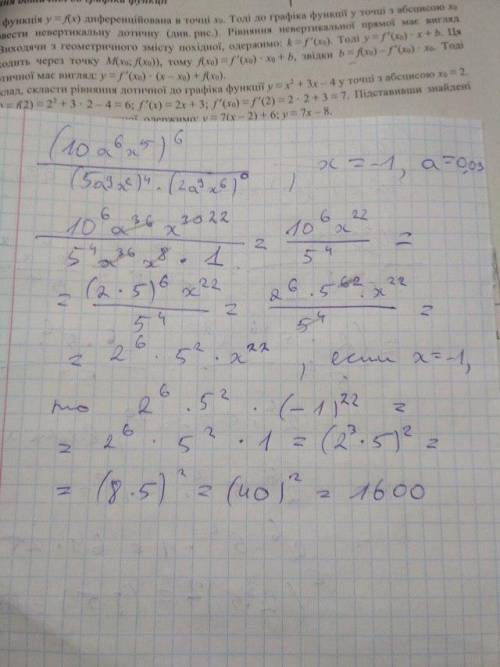 функція y = f(x) диференційована в точці x₀. Тоді до графіка функції у точці з абсцисою x₀
вести невертикальну дотичну (див. рис.). Рівняння невертикальної прямої має вигляд
Виходячи з геометричного змісту похідної, одержимо: k = f'(x₀). Тоді y = f'(x₀) · x + b. Ця
одить через точку M(x₀; f(x₀)), тому f(x₀) = f'(x₀) · x₀ + b, звідки b = f(x₀) – f'(x₀) · x₀. Тоді
отичної має вигляд: y = f'(x₀) · (x – x₀) + f(x₀).
клад, скласти рівняння дотичної до графіка функції y = x² + 3x – 4 у точці з абсцисою x₀ = 2.
= f(2) = 2² + 3 · 2 – 4 = 6; f'(x) = 2x + 3; f'(x₀) = f'(2) = 2 · 2 + 3 = 7. Підставивши знайдені
одержимо: y = 7(x – 2) + 6; y = 7x – 8.
(10a⁶x⁵)⁶
(5a⁹x²)⁴ · (2a³x⁶)⁰ , x = -1, a = 0,03
10⁶ a³⁶ x³⁰ ²² / 5⁴ a³⁶ x⁸ · 1 = 10⁶ x²² / 5⁴ =
= (2 · 5)⁶ x²² / 5⁴ = 2⁶ · 5⁶² · x²² / 5⁴ =
= 2⁶ · 5² · x²² , если x = -1,
то 2⁶ · 5² · (-1)²² =
= 2⁶ · 5² · 1 = (2³ · 5)² =
= (8 · 5)² = (40)² = 1600